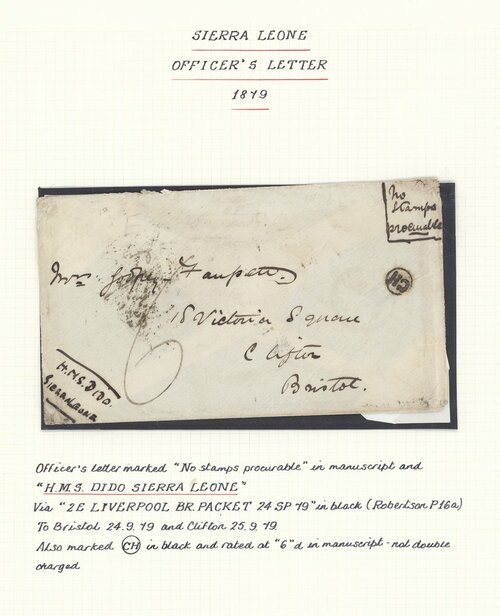 SIERRA LEONE
OFFICER'S LETTER
1879
No
stamps
procurable
CH
Mrs Godfrey Faussett
15 Victoria Square
Clifton
Bristol.
6
H.M.S. DIDO.
SIERRA LEONE
Officer's letter marked "No stamps procurable" in manuscript and
"H.M.S. DIDO SIERRA LEONE"
Via "2E LIVERPOOL BR. PACKET 24 SP 79" in black (Robertson P.16a)
To Bristol 24.9.79 and Clifton 25.9.79.
Also marked CH in black and rated at "6"d in manuscript - not double
charged